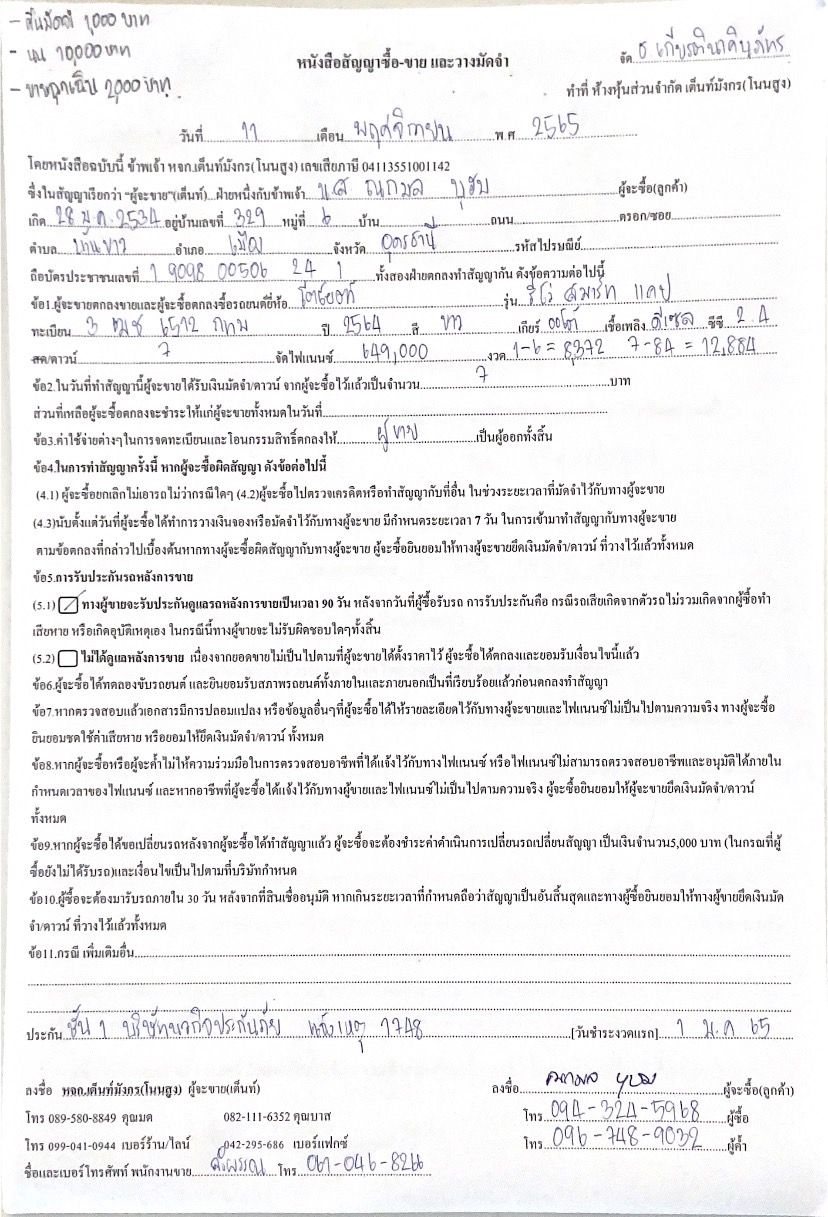 - คืนมัดจำ 1,000 บาท
- แนะ 10,000 บาท
- ยางฉุกเฉิน 2,000 บาท
จัด ธ เกียรตินาคินภัทร
หนังสือสัญญาซื้อ-ขาย และวางมัดจำ
ทำที่ ห้างหุ้นส่วนจำกัด เต็นท์มังกร(โนนสูง)
วันที่ 11 เดือน พฤศจิกายน พ.ศ 2565
โดยหนังสือฉบับนี้ ข้าพเจ้า หจก.เต็นท์มังกร(โนนสูง) เลขเสียภาษี 04113551001142
ซึ่งในสัญญาเรียกว่า "ผู้จะขาย"(เต็นท์)....ฝ่ายหนึ่งกับข้าพเจ้า น.ส ณกมล ผู้จะซื้อ(ลูกค้า)
เกิด 28 ม.ค. 2534 อยู่บ้านเลขที่ 329 หมู่ที่ 6 บ้าน ถนน ตรอก/ซอย
ตำบล บ้านขาว อำเภอ เมือง จังหวัด อุดรธานี รหัสไปรษณีย์
ถือบัตรประชาชนเลขที่ 1 9098 00506 24 1 ทั้งสองฝ่ายตกลงทำสัญญากัน ดังข้อความต่อไปนี้
ข้อ1.ผู้จะขายตกลงขายและผู้จะซื้อตกลงซื้อรถยนต์ยี่ห้อ โตโยต้า รุ่น รีโว่ สมาร์ท แคป
ทะเบียน 3 ฒช 6512 กทม ปี 2564 สี ขาว เกียร์ ออโต้ เชื้อเพลิง ดีเซล ซีซี 2.4
สด/ดาวน์ 7 จัดไฟแนนซ์ 649,000 งวด 1-6 = 8,372 7-84 = 12,884
ข้อ2.ในวันที่ทำสัญญานี้ผู้จะขายได้รับเงินมัดจำ/ดาวน์ จากผู้จะซื้อไว้แล้วเป็นจำนวน 7 บาท
ส่วนที่เหลือผู้จะซื้อตกลงจะชำระให้แก่ผู้จะขายทั้งหมดในวันที่
ข้อ3.ค่าใช้จ่ายต่างๆในการจดทะเบียนและโอนกรรมสิทธิ์ตกลงให้ ผู้ขาย เป็นผู้ออกทั้งสิ้น
ข้อ4.ในการทำสัญญาครั้งนี้ หากผู้จะซื้อผิดสัญญา ดังข้อต่อไปนี้
(4.1) ผู้จะซื้อยกเลิกไม่เอารถไม่ว่ากรณีใดๆ (4.2)ผู้จะซื้อไปตรวจเครดิตหรือทำสัญญากับที่อื่น ในช่วงระยะเวลาที่มัดจำไว้กับทางผู้จะขาย
(4.3)นับตั้งแต่วันที่ผู้จะซื้อได้ทำการวางเงินจองหรือมัดจำไว้กับทางผู้จะขาย มีกำหนดระยะเวลา 7 วัน ในการเข้ามาทำสัญญากับทางผู้จะขาย
ตามข้อตกลงที่กล่าวไปเบื้องต้นหากทางผู้จะซื้อผิดสัญญากับทางผู้จะขาย ผู้จะซื้อยินยอมให้ทางผู้จะขายยึดเงินมัดจำ/ดาวน์ ที่วางไว้แล้วทั้งหมด
ข้อ5.การรับประกันรถหลังการขาย
(5.1) ทางผู้ขายจะรับประกันดูแลรถหลังการขายเป็นเวลา 90 วัน หลังจากวันที่ผู้ซื้อรับรถ การรับประกันคือ กรณีรถเสียเกิดจากตัวรถไม่รวมเกิดจากผู้ซื้อทำ
เสียหาย หรือเกิดอุบัติเหตุเอง ในกรณีนี้ทางผู้ขายจะไม่รับผิดชอบใดๆทั้งสิ้น
(5.2) ไม่ได้ดูแลหลังการขาย เนื่องจากยอดขายไม่เป็นไปตามที่ผู้จะขายได้ตั้งราคาไว้ ผู้จะซื้อได้ตกลงและยอมรับเงื่อนไขนี้แล้ว
ข้อ6.ผู้จะซื้อได้ทดลองขับรถยนต์ และยินยอมรับสภาพรถยนต์ทั้งภายในและภายนอกเป็นที่เรียบร้อยแล้วก่อนตกลงทำสัญญา
ข้อ7.หากตรวจสอบแล้วเอกสารมีการปลอมแปลง หรือข้อมูลอื่นๆที่ผู้จะซื้อได้ให้รายละเอียดไว้กับทางผู้จะขายและไฟแนนซ์ไม่เป็นไปตามความจริง ทางผู้จะซื้อ
ยินยอมชดใช้ค่าเสียหาย หรือยอมให้ยึดเงินมัดจำ/ดาวน์ ทั้งหมด
ข้อ8.หากผู้จะซื้อหรือผู้จะค้ำไม่ให้ความร่วมมือในการตรวจสอบอาชีพที่ได้แจ้งไว้กับทางไฟแนนซ์ หรือไฟแนนซ์ไม่สามารถตรวจสอบอาชีพและอนุมัติได้ภายใน
กำหนดเวลาของไฟแนนซ์ และหากอาชีพที่ผู้จะซื้อได้แจ้งไว้กับทางผู้ขายและไฟแนนซ์ไม่เป็นไปตามความจริง ผู้จะซื้อยินยอมให้ผู้จะขายยึดเงินมัดจำ/ดาวน์
ทั้งหมด
ข้อ9.หากผู้จะซื้อได้ขอเปลี่ยนรถหลังจากผู้จะซื้อได้ทำสัญญาแล้ว ผู้จะซื้อจะต้องชำระค่าดำเนินการเปลี่ยนรถเปลี่ยนสัญญา เป็นเงินจำนวน5,000 บาท (ในกรณที่ผู้
ซื้อยังไม่ได้รับรถ)และเงื่อนไขเป็นไปตามที่บริษัทกำหนด
ข้อ10.ผู้ซื้อจะต้องมารับรถภายใน 30 วัน หลังจากที่สินเชื่ออนุมัติ หากเกินระยะเวลาที่กำหนดถือว่าสัญญาเป็นอันสิ้นสุดและทางผู้ซื้อยินยอมให้ทางผู้ขายยึดเงินมัด
จำ/ดาวน์ ที่วางไว้แล้วทั้งหมด
ข้อ11.กรณี เพิ่มเติมอื่น
ประกัน ชั้น 1 บริษัทนวกิจประกันภัย แจ้งเหตุ 1748 [วันชำระงวดแรก] 1 ม.ค 65
ลงชื่อ หจก.เต็นท์มังกร(โนนสูง) ผู้จะขาย(เต็นท์) ลงชื่อ ณกมล ผู้จะซื้อ(ลูกค้า)
โทร 089-580-8849 คุณมด 082-111-6352 คุณบาส โทร 094-324-5968 ผู้ซื้อ
โทร 099-041-0944 เบอร์ร้าน/ไลน์ 042-295-686 เบอร์แฟกซ์ โทร 096-748-9032 ผู้ค้ำ
ชื่อและเบอร์โทรศัพท์ พนักงานขาย โทร 061-046-8266